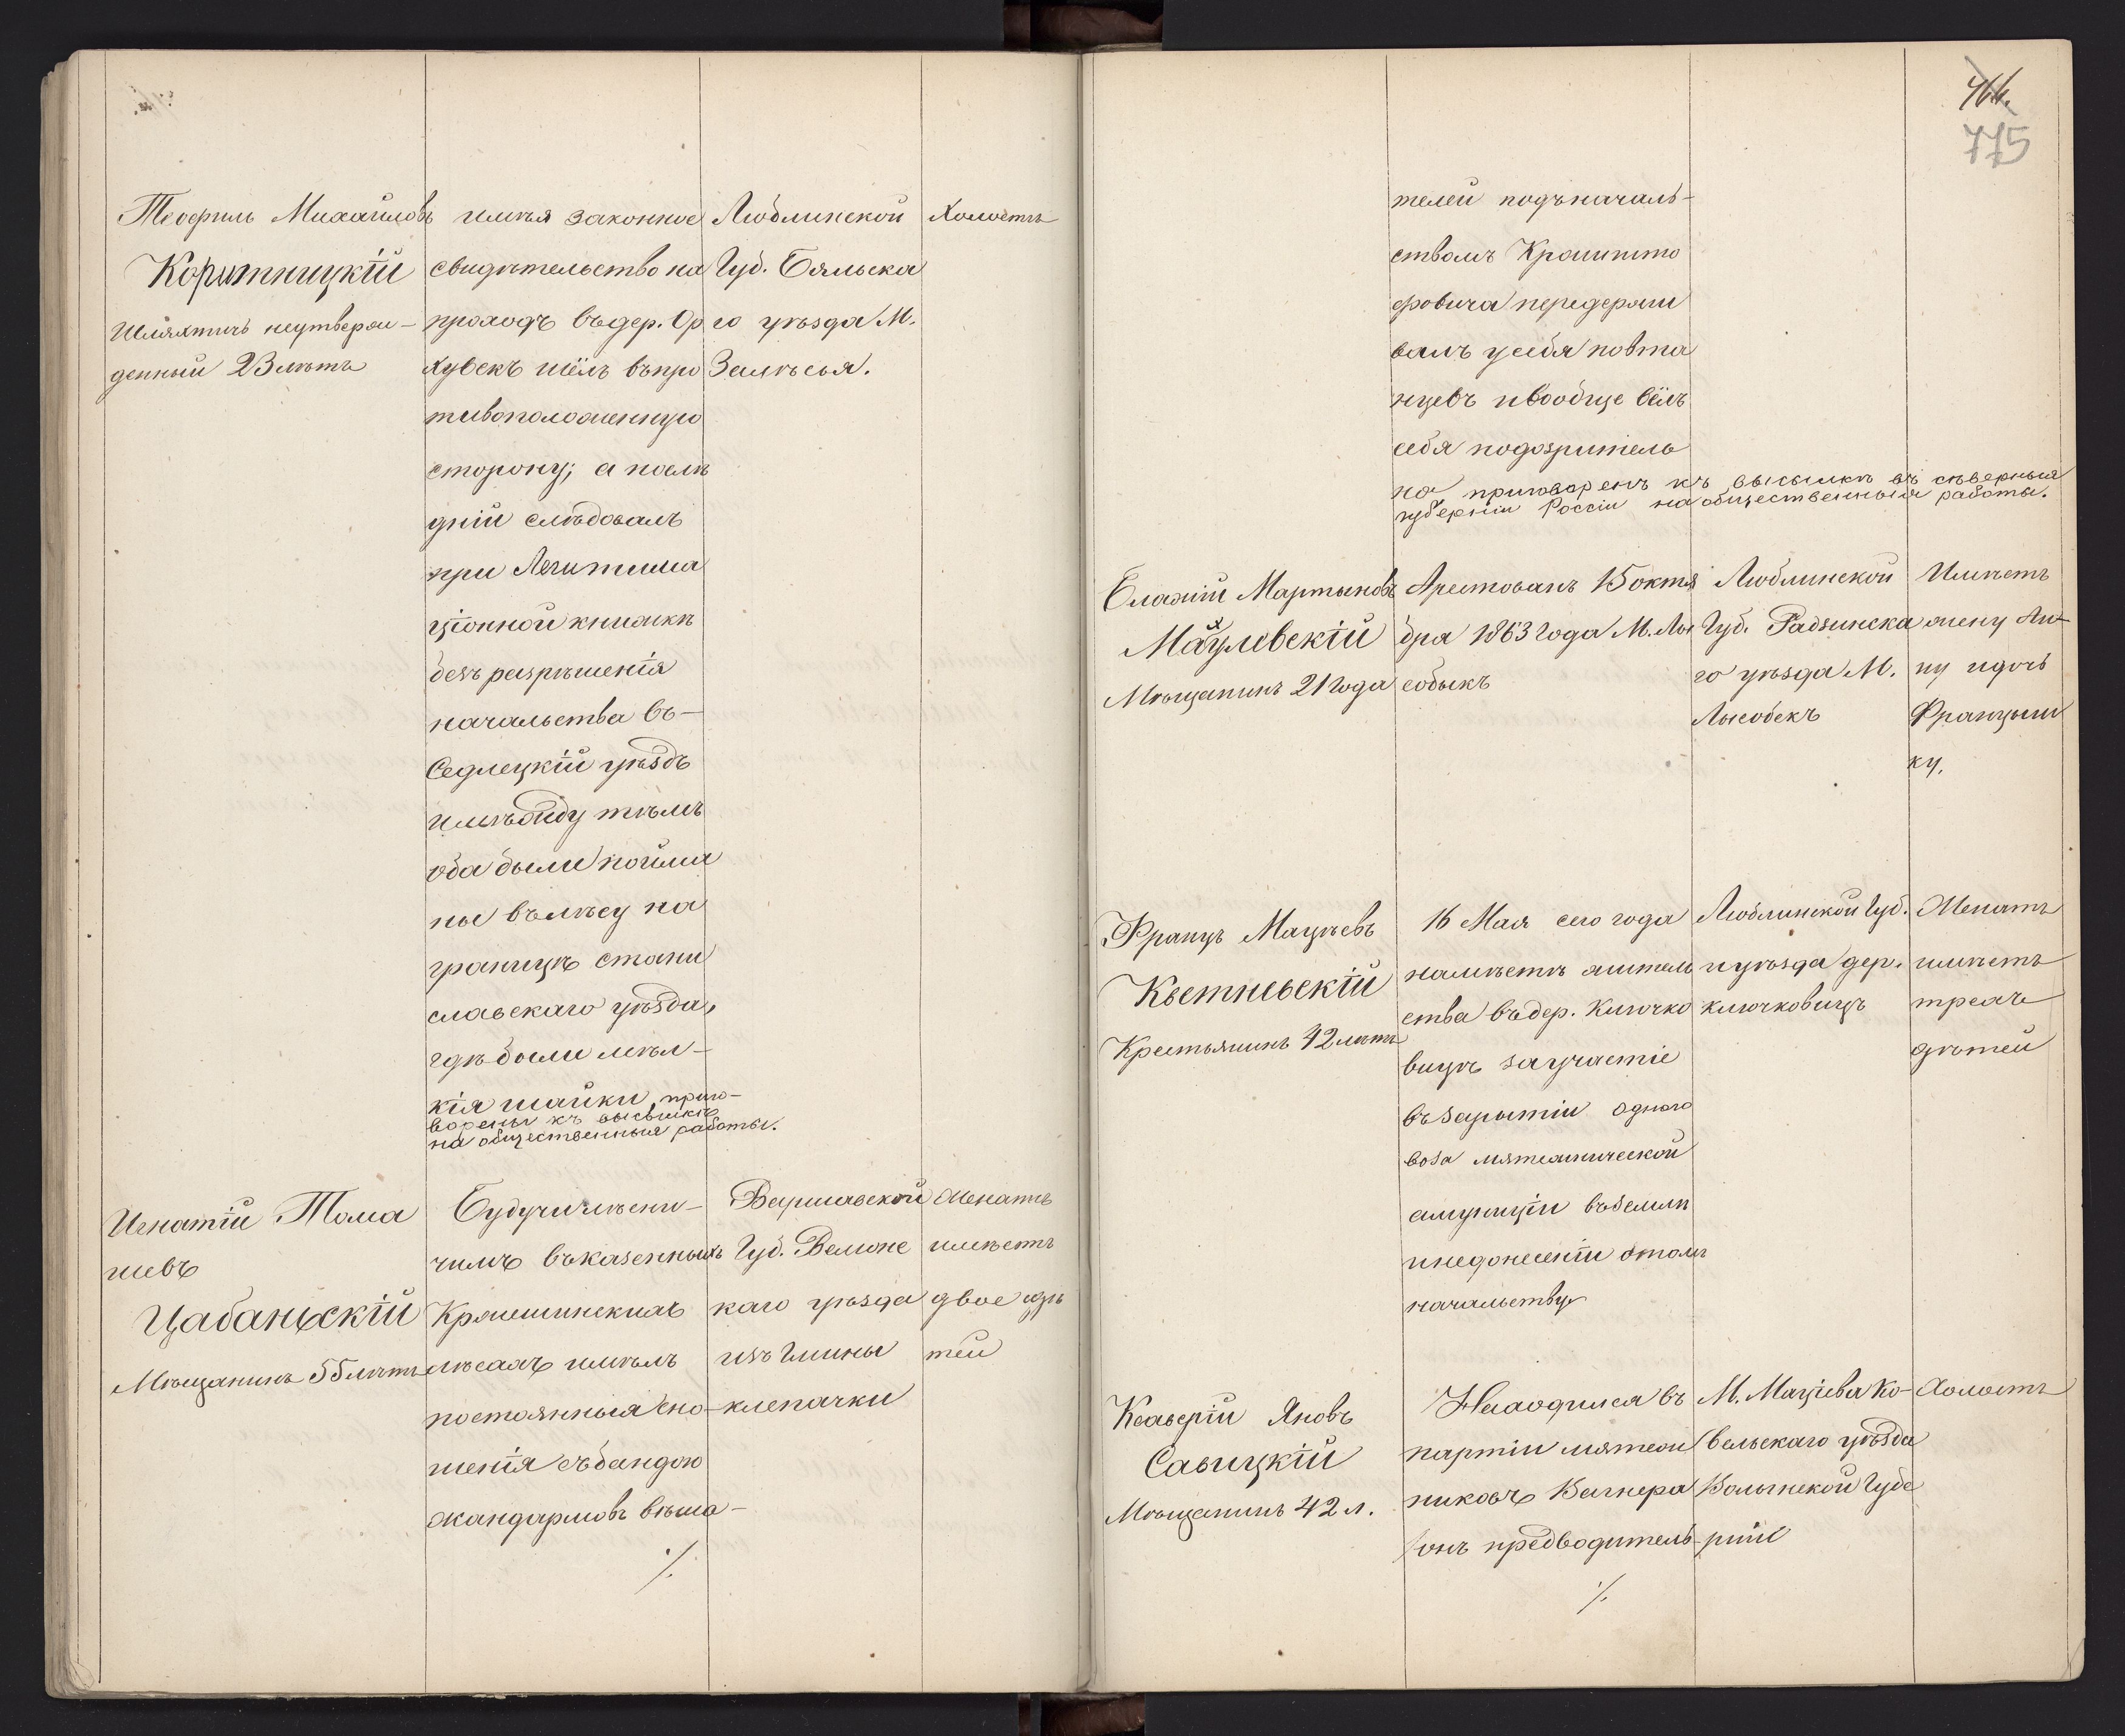 Теофиль Михайловъ
Коритницкій
Шляхтичъ неутверж-
денный 23 лѣтъ
имѣя законное
свидѣтельство на
проходъ въ дер. Ор
хувекъ шёлъ въ про
тивоположенную
сторону; а послѣ
дній слѣдовалъ
при Легитима
ціонной книжкѣ
безъ разрѣшенія
начальства въ
Седлецкій уѣздъ
и между тѣмъ
оба были пойма
ны въ лѣсу на
границѣ стани
славскаго уѣзда,
гдѣ были мѣл-
кія шайки, приго-
ворены къ высылкѣ
на общественныя работы.
Люблинской
Губ. Бяльска
го уѣзда М.
Залѣсья.
Холостъ
Игнатій Тома
шевъ
Цабаньскій
Мѣщанинъ 55 лѣтъ
Будучи лѣсни-
чимъ въ казенныхъ
лѣсахъ имѣлъ
постоянныя сно-
шенія съ бандою
жандармовъ вѣша-
./.
Варшавской
Губ. Велюнс
каго уѣзда
изъ Гмины
клепачки
Женатъ
имѣетъ
двое дѣ
тей
466.
775
телей подъ началь-
ствомъ
фовича передержи
валъ у себя повста
нцевъ и вообще вёлъ
себя подозритель
но приговоренъ къ высылкѣ въ сѣверныя
губерніи Россіи на общественныя работы.
Блажій Мартыновъ
Мѣщанинъ 21 года
Арестованъ 15 октя
бря 1863 года М. Лы
собыкъ
Люблинской
Губ. Радзинска
го уѣзда М.
Лысобекъ
Имѣетъ
жену Ан-
ну и дочь
Францыш
ку.
Францъ Мацѣевъ
Кветневскій
Крестьянинъ 42 лѣтъ
16 Мая сего года
на мѣстѣ житель
ства въ дер. Ключко
вицѣ за участіе
въ зарытіи одного
воза мятежнической
амуниціи въ земли
и недонесеніи о томъ
начальству
Люблинской Губ.
и уѣзда дер.
ключковицъ
Женатъ
имѣетъ
трехъ
дѣтей
Ксаверій Яновъ
Савицкій
Мѣщанинъ 42 л.
Находился въ
партіи мятеж
никовъ Вагнера
онъ предводитель
./.
М. Маціева Ко-
вельскаго уѣзда
Волынской Губе
рніи
Холостъ